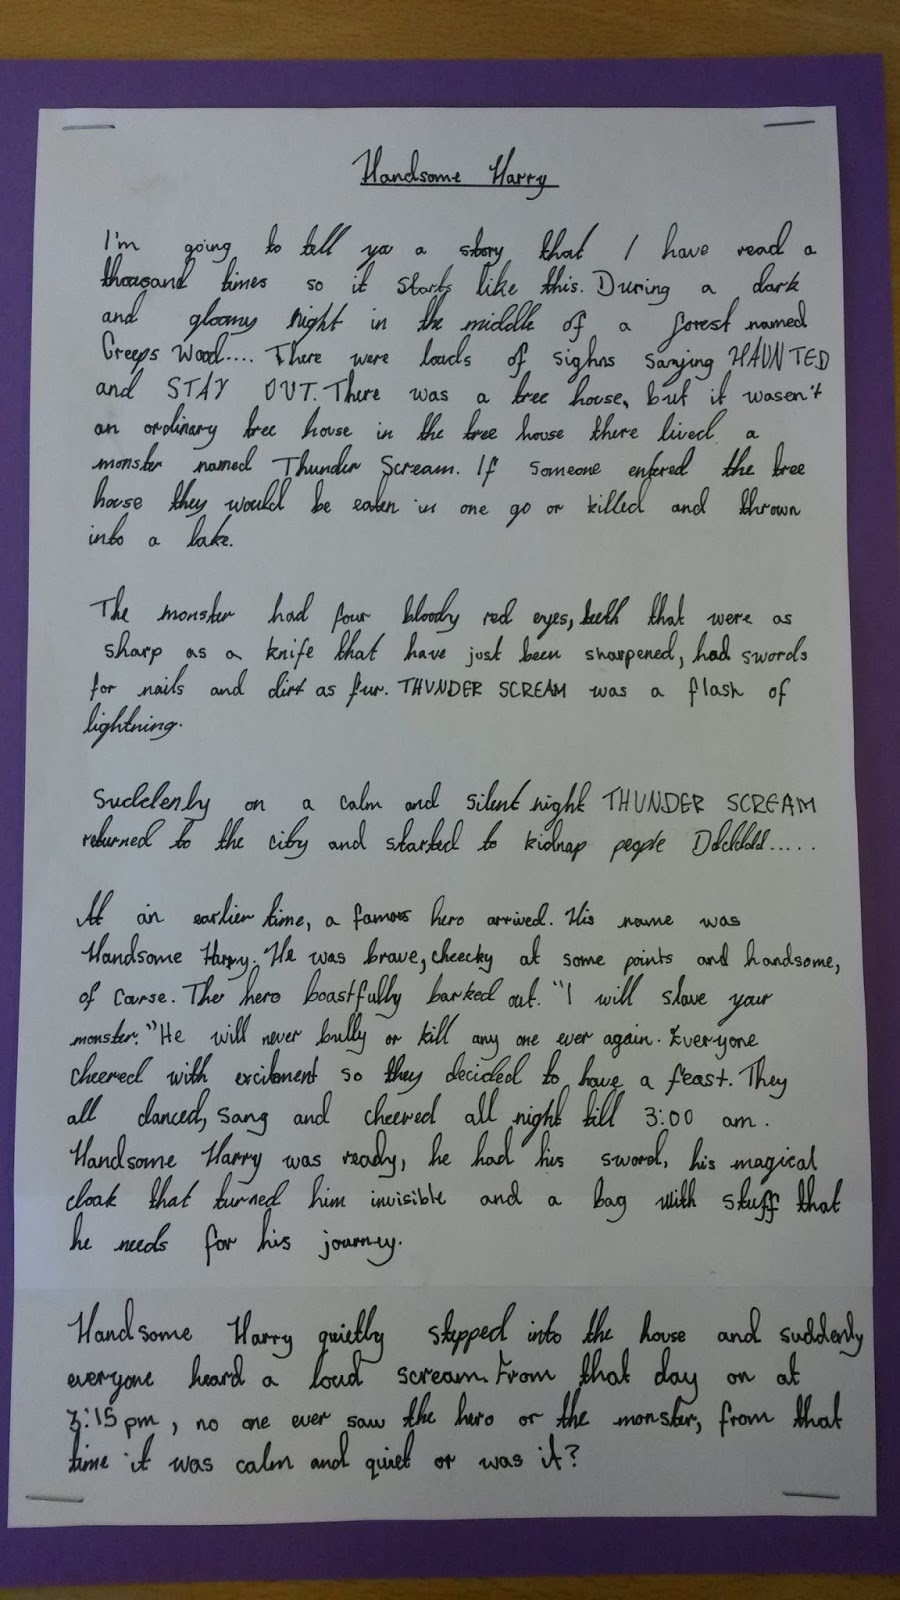 Handsome Harry
I'm going to tell you a story that I have read a
thousand times so it starts like this. During a dark
and gloomy night in the middle of a forest named
Creeps Wood.... There were loads of sighns saying HAUNTED
and STAY OUT. There was a tree house, but it wasen't
an ordinary tree house in the tree house there lived a
monster named Thunder Scream. If someone entered the tree
house they would be eaten in one go or killed and thrown
into a lake.
The monster had four bloody red eyes, teeth that were as
sharp as a knife that have just been sharpened, had swords
for nails and dirt as fur. THUNDER SCREAM was a flash of
lightning.
Suddenly on a calm and silent night THUNDER SCREAM
returned to the city and started to kidnap people
At an earlier time, a famous hero arrived. His name was
Handsome Harry. He was brave, cheecky at some points and handsome,
of course. The hero boastfully barked out. "I will slave your
monster." He will never bully or kill any one ever again. Everyone
cheered with excitement so they decided to have a feast. They
all danced, sang and cheered all night till 3:00 am.
Handsome Harry was ready, he had his sword, his magical
cloak that turned him invisible and a bag with stuff that
he needs for his journey.
Handsome Harry quietly stepped into the house and suddenly
everyone heard a loud scream. From that day on at
3:15 pm, no one ever saw the hero or the monster, from that
time it was calm and quiet or was it?